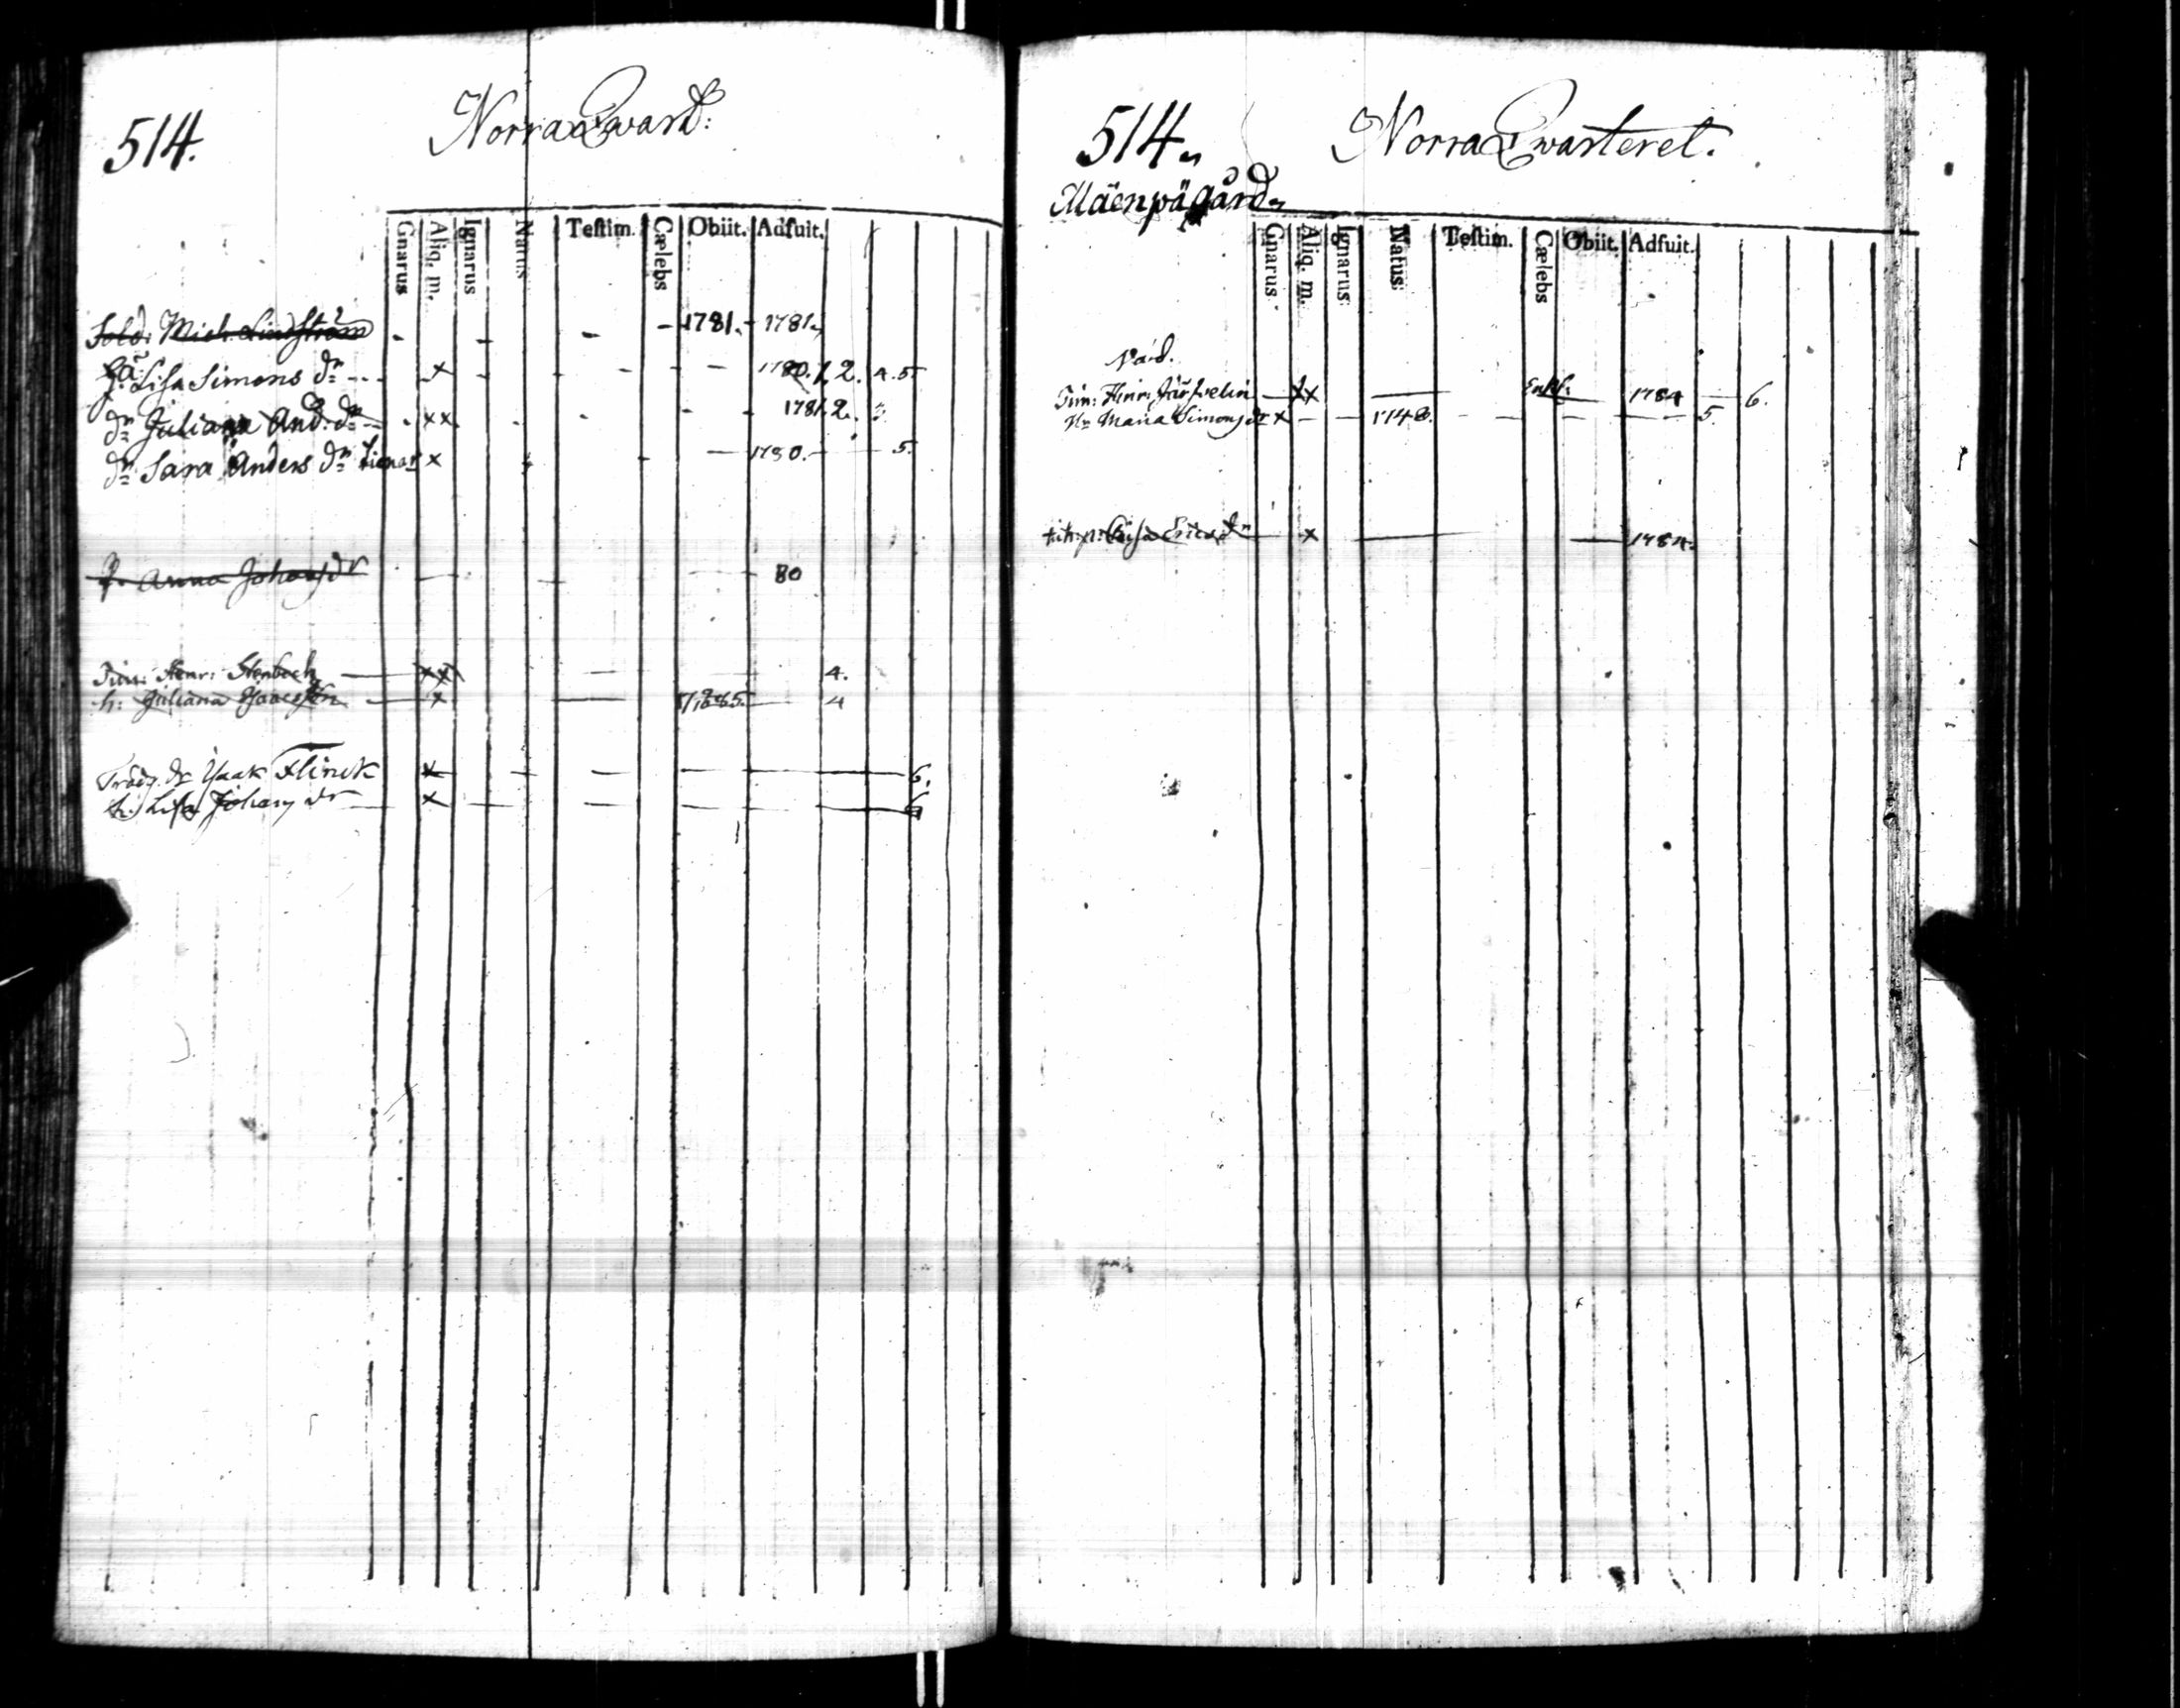 514. Norra Qvart:
Gnarus Aliq. m. Ignarus Natus Testim. Cælebs Obiit. Adfuit.
Sold: Mich. Lindström - - - - 1781. - 1781.
Lisa Simons dr - - - x - - - - 1780. 1. 2. 4. 5
dr Juliana And: dr - - xx - - - - 1781. 2.
dr Sara Anders dr tienar x - - - 1780. - - 5.
p. Anna Johansdr - - - - 80
Tim: Henr: Stenbeck — xx — — 4.
h: Juliana — x — 4
Trädg. dr Isaak Flinck x — — — — 6.
h: Lisa Johans dr — x — — — — 6
514. Norra Qwarteret.
Mäenpä gård.
Gnarus Aliq. m. Ignarus Natus Testim. Cælebs Obiit. Adfuit.
Tim: Henr: — xx — Enkl: — 1784 — 6.
Maria Simonsdr x - - 1748. - - - - 5.
Ericsdr — x — — 1784.